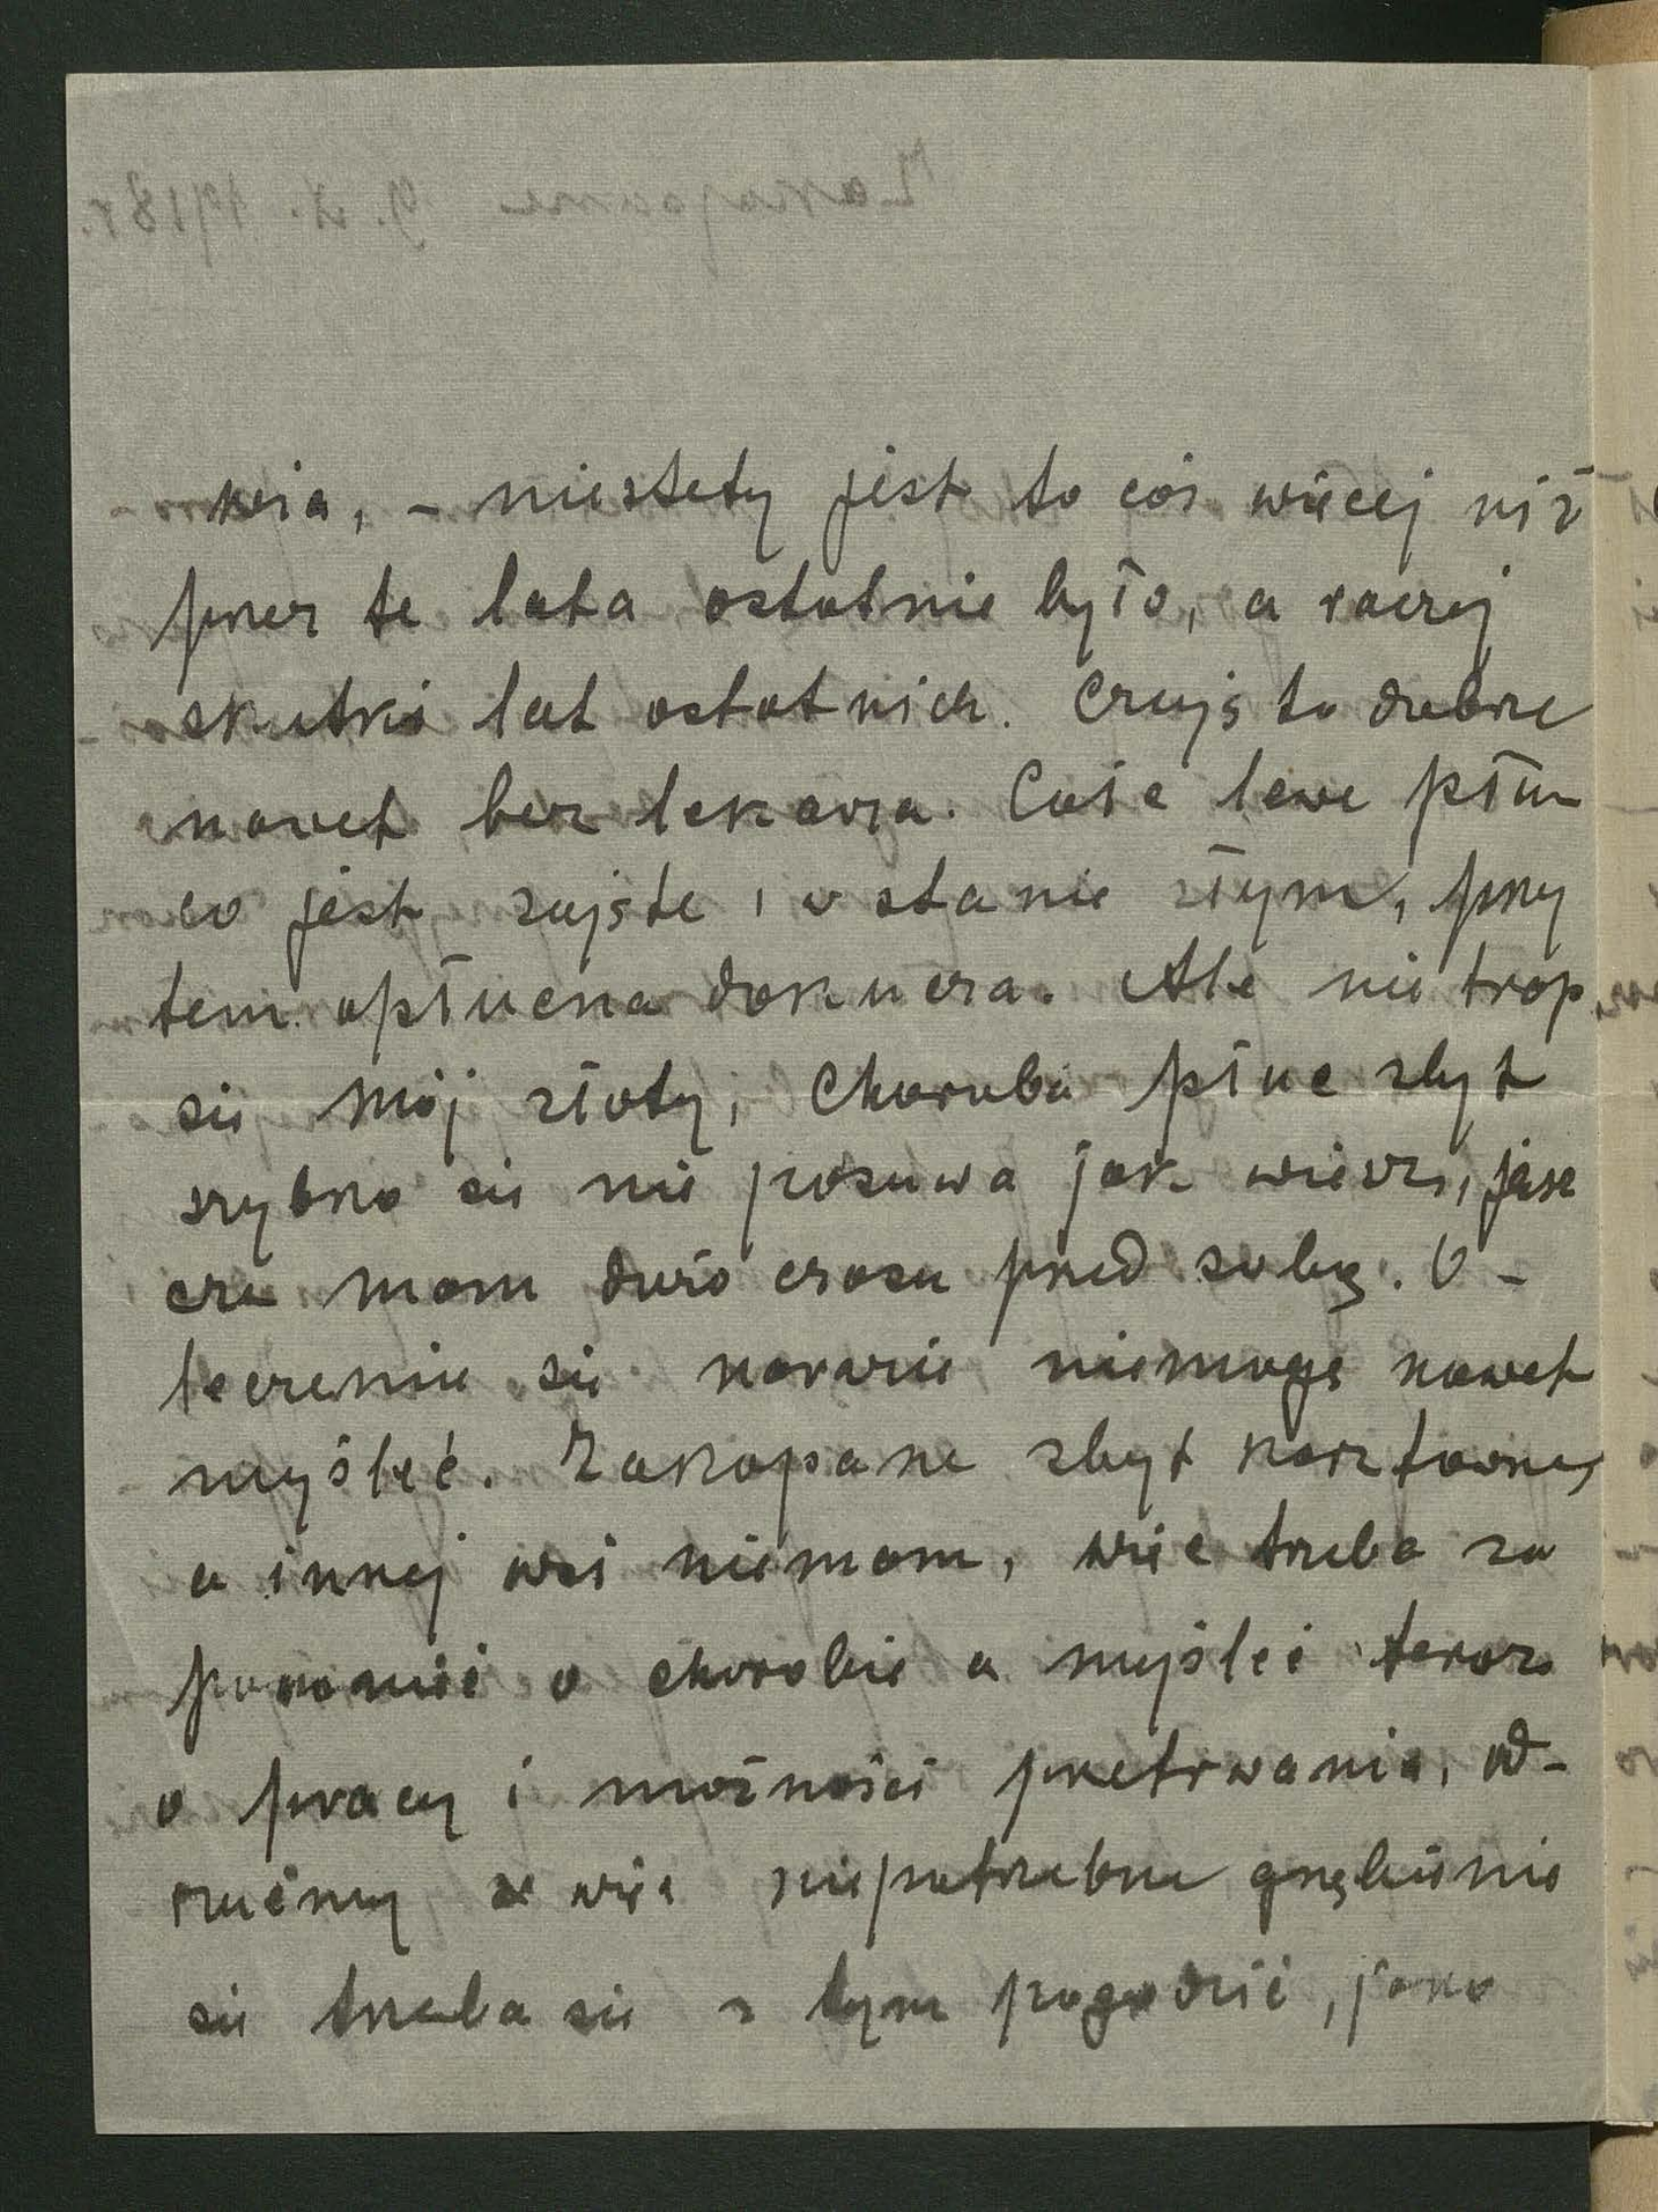 wia, – niestety jest to coś więcej niż
przez te lata ostatnie było, a raczej
skutki lat ostatnich. Czuję to dobrze
nawet bez lekarza. Całe lewe płuc
co jest zajęte i w stanie złym, przy
tem opłucna dokucza. Ale nie trap
się mój złoty, Choroba płuc zbyt
szybko się nie posuwa jak wiesz, jesz
cze mam dużo czasu przed sobą. O –
leczeniu się narazie niemogę nawet
myśleć. Zakopane zbyt kosztowne,
a innej wsi niemam, więc trzeba za
pomnieć o chorobie a myśleć teraz
o pracy i możności przetrwania, od-
rzućmy więc niepotrzebne gnębienie
się trzeba się z tym pogodzić, jako
Zakopane 9. X. 1918 r.